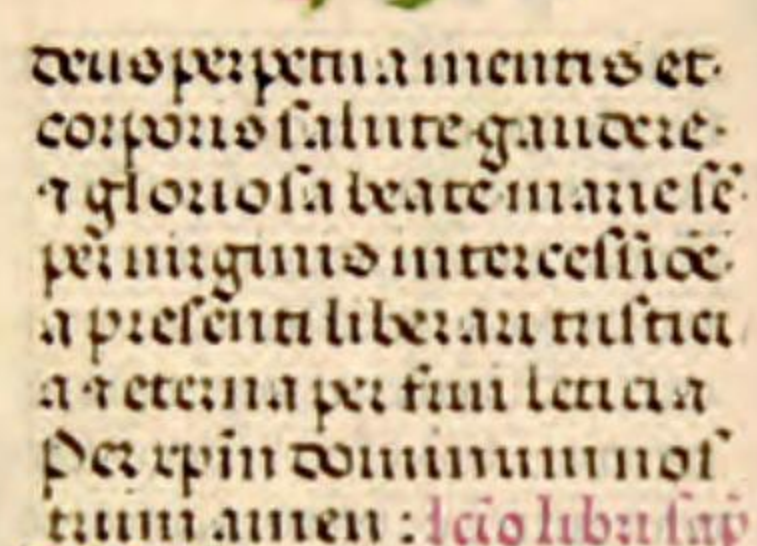 deus perpetua mentis et
corporis salute gaudere
⁊ gloriosa beate marie sē
per uirginis intercessiōe
a presenti liberari tristici
a ⁊ eterna per frui leticia
Per xp̄m dominum nos
trum amen : lcio libri sap̄